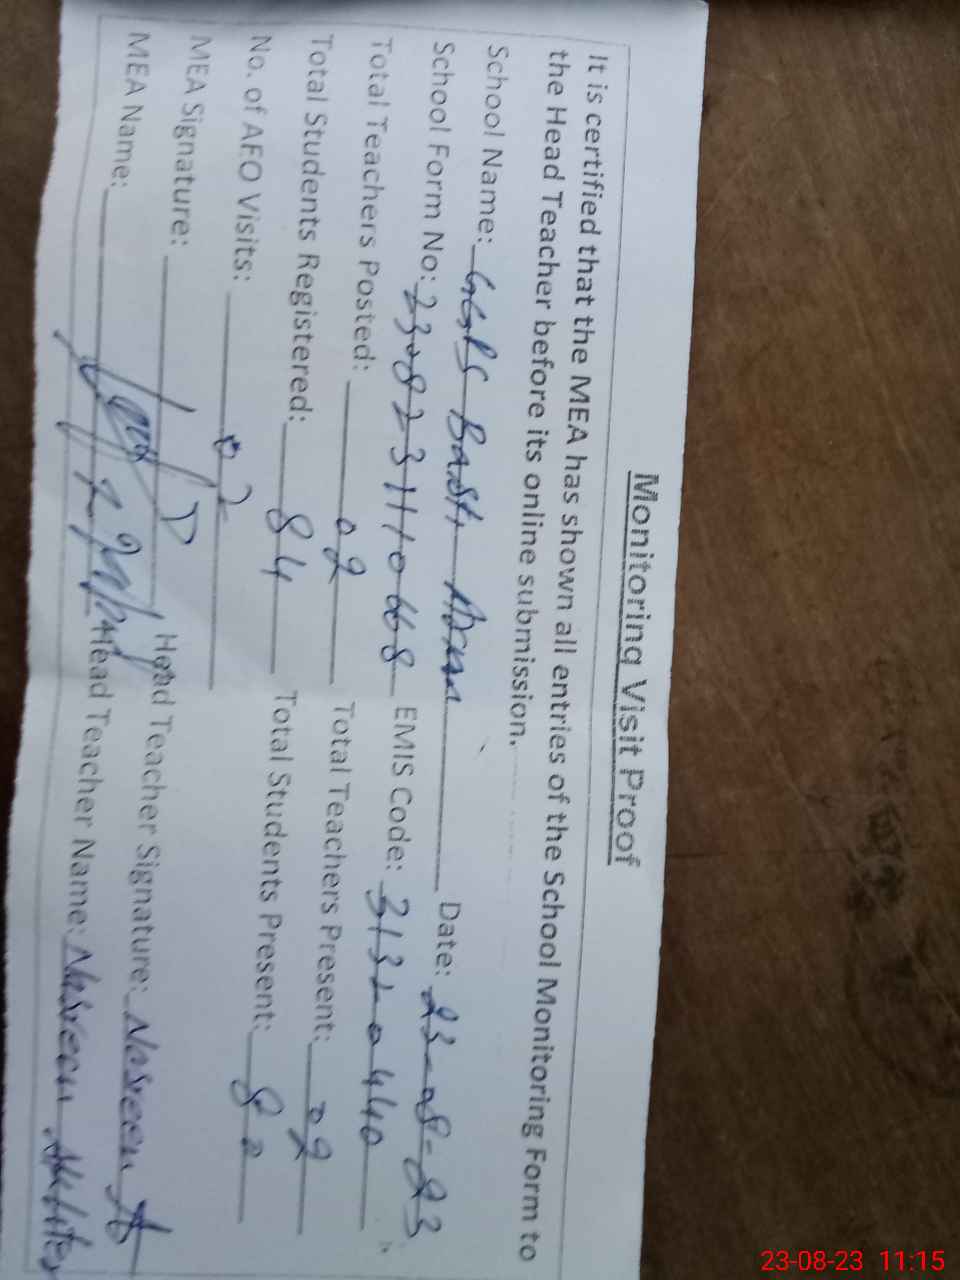 Monitoring Visit Proof
It is certified that the MEA has shown all entries of the School Monitoring Form to
the Head Teacher before its online submission.
School Name: GGPS Basti Date: 23-08-23
School Form No: 2308231110668 EMIS Code: 31320440
Total Teachers Posted: 02 Total Teachers Present: 02
Total Students Registered: 84 Total Students Present: 82
No. of AEO Visits: 02
MEA Signature: Head Teacher Signature: Nasreen A
MEA Name: Head Teacher Name: Nasreen
23-08-23 11:15